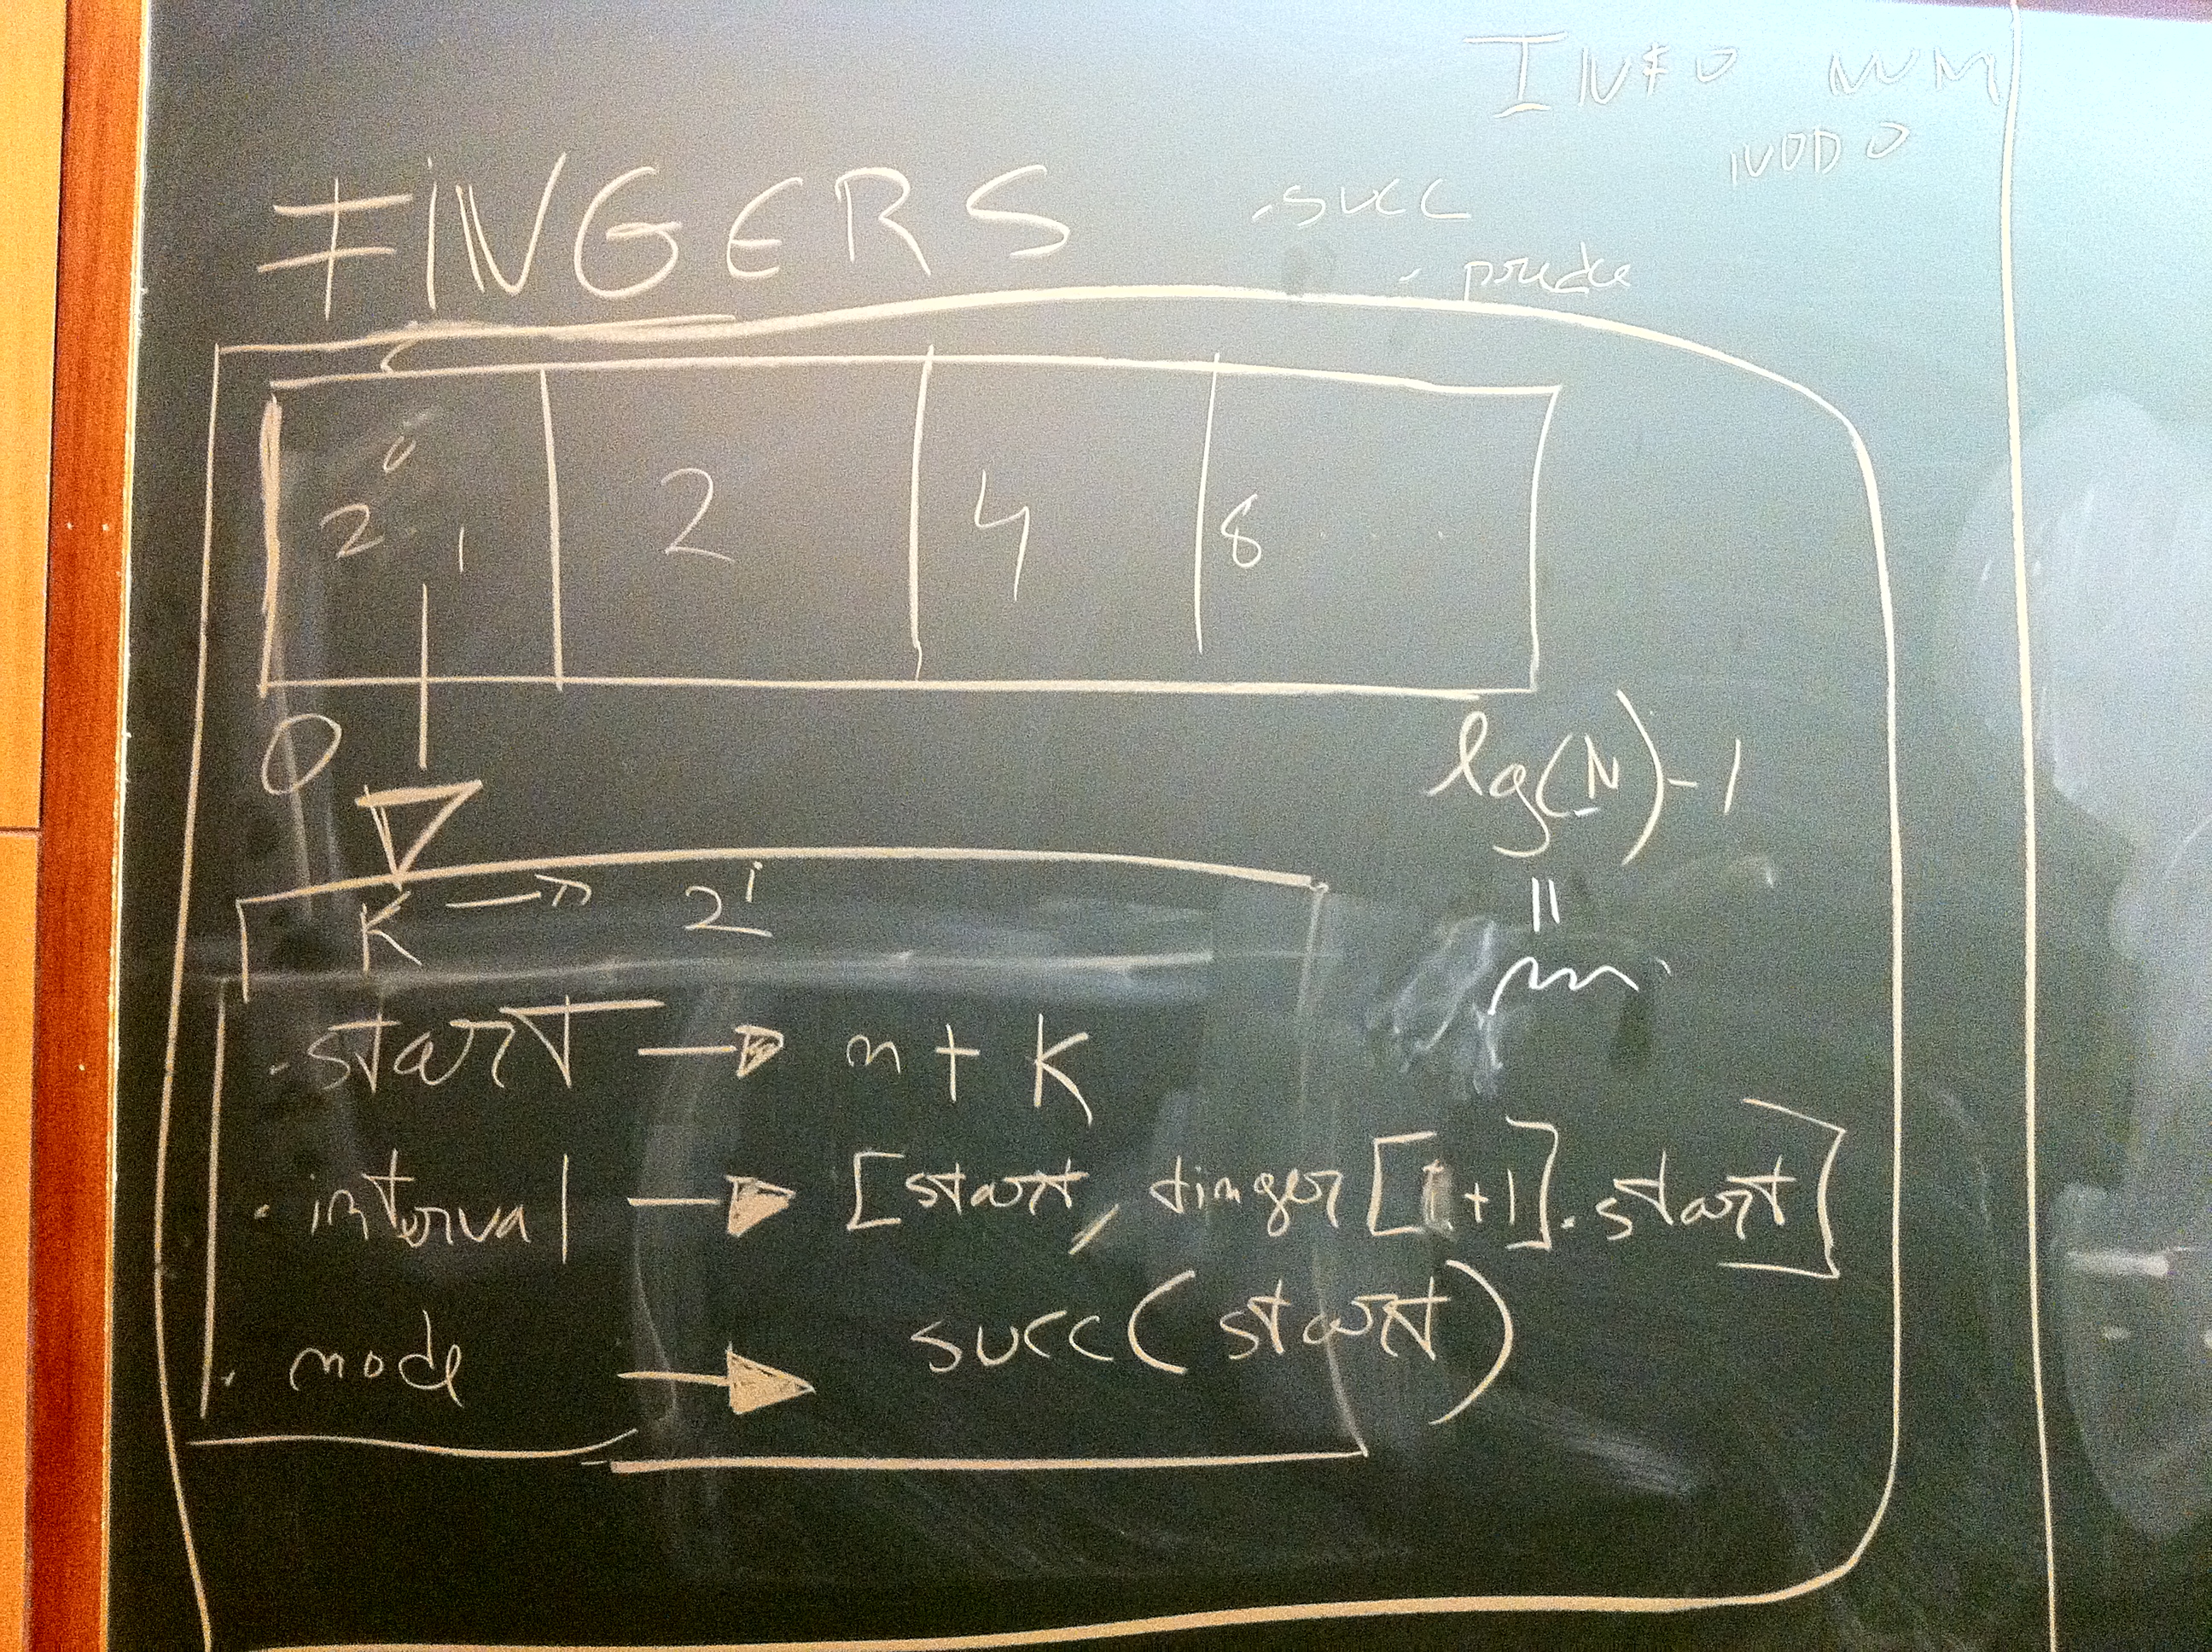 INFO NUM
NODO
FINGERS
. succ
. prede
2⁰ 1 2 4 8 . . . .
0 lg(N)-1
=
m
K → 2ⁱ
. start → n + K
. interval → [start, finger[i+1].start]
. node → succ(start)